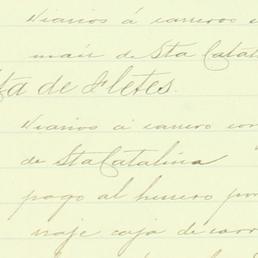 Viarios á carreros
maiz de Sta Catal
ta de Fletes.
Viarios á carrero con
de Sta Catalina
pago al herrero por
viaje caja de carr